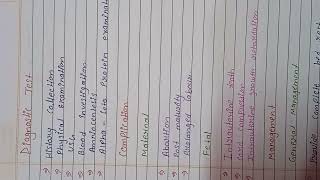 Diagnostic Test
→ History Collection
→ Physical Examination
→ USG
→ Blood Investigation
→ Amniocentesis
→ Alpha - Feto Protein examinat
Complication
Maternal
→ Abortion
→ Post maturity
→ Prolonged labour
Fetal
→ Intrauterine death
→ Cord compression
→ Intrauterine growth
Management
General Management
Provide complete bed rest